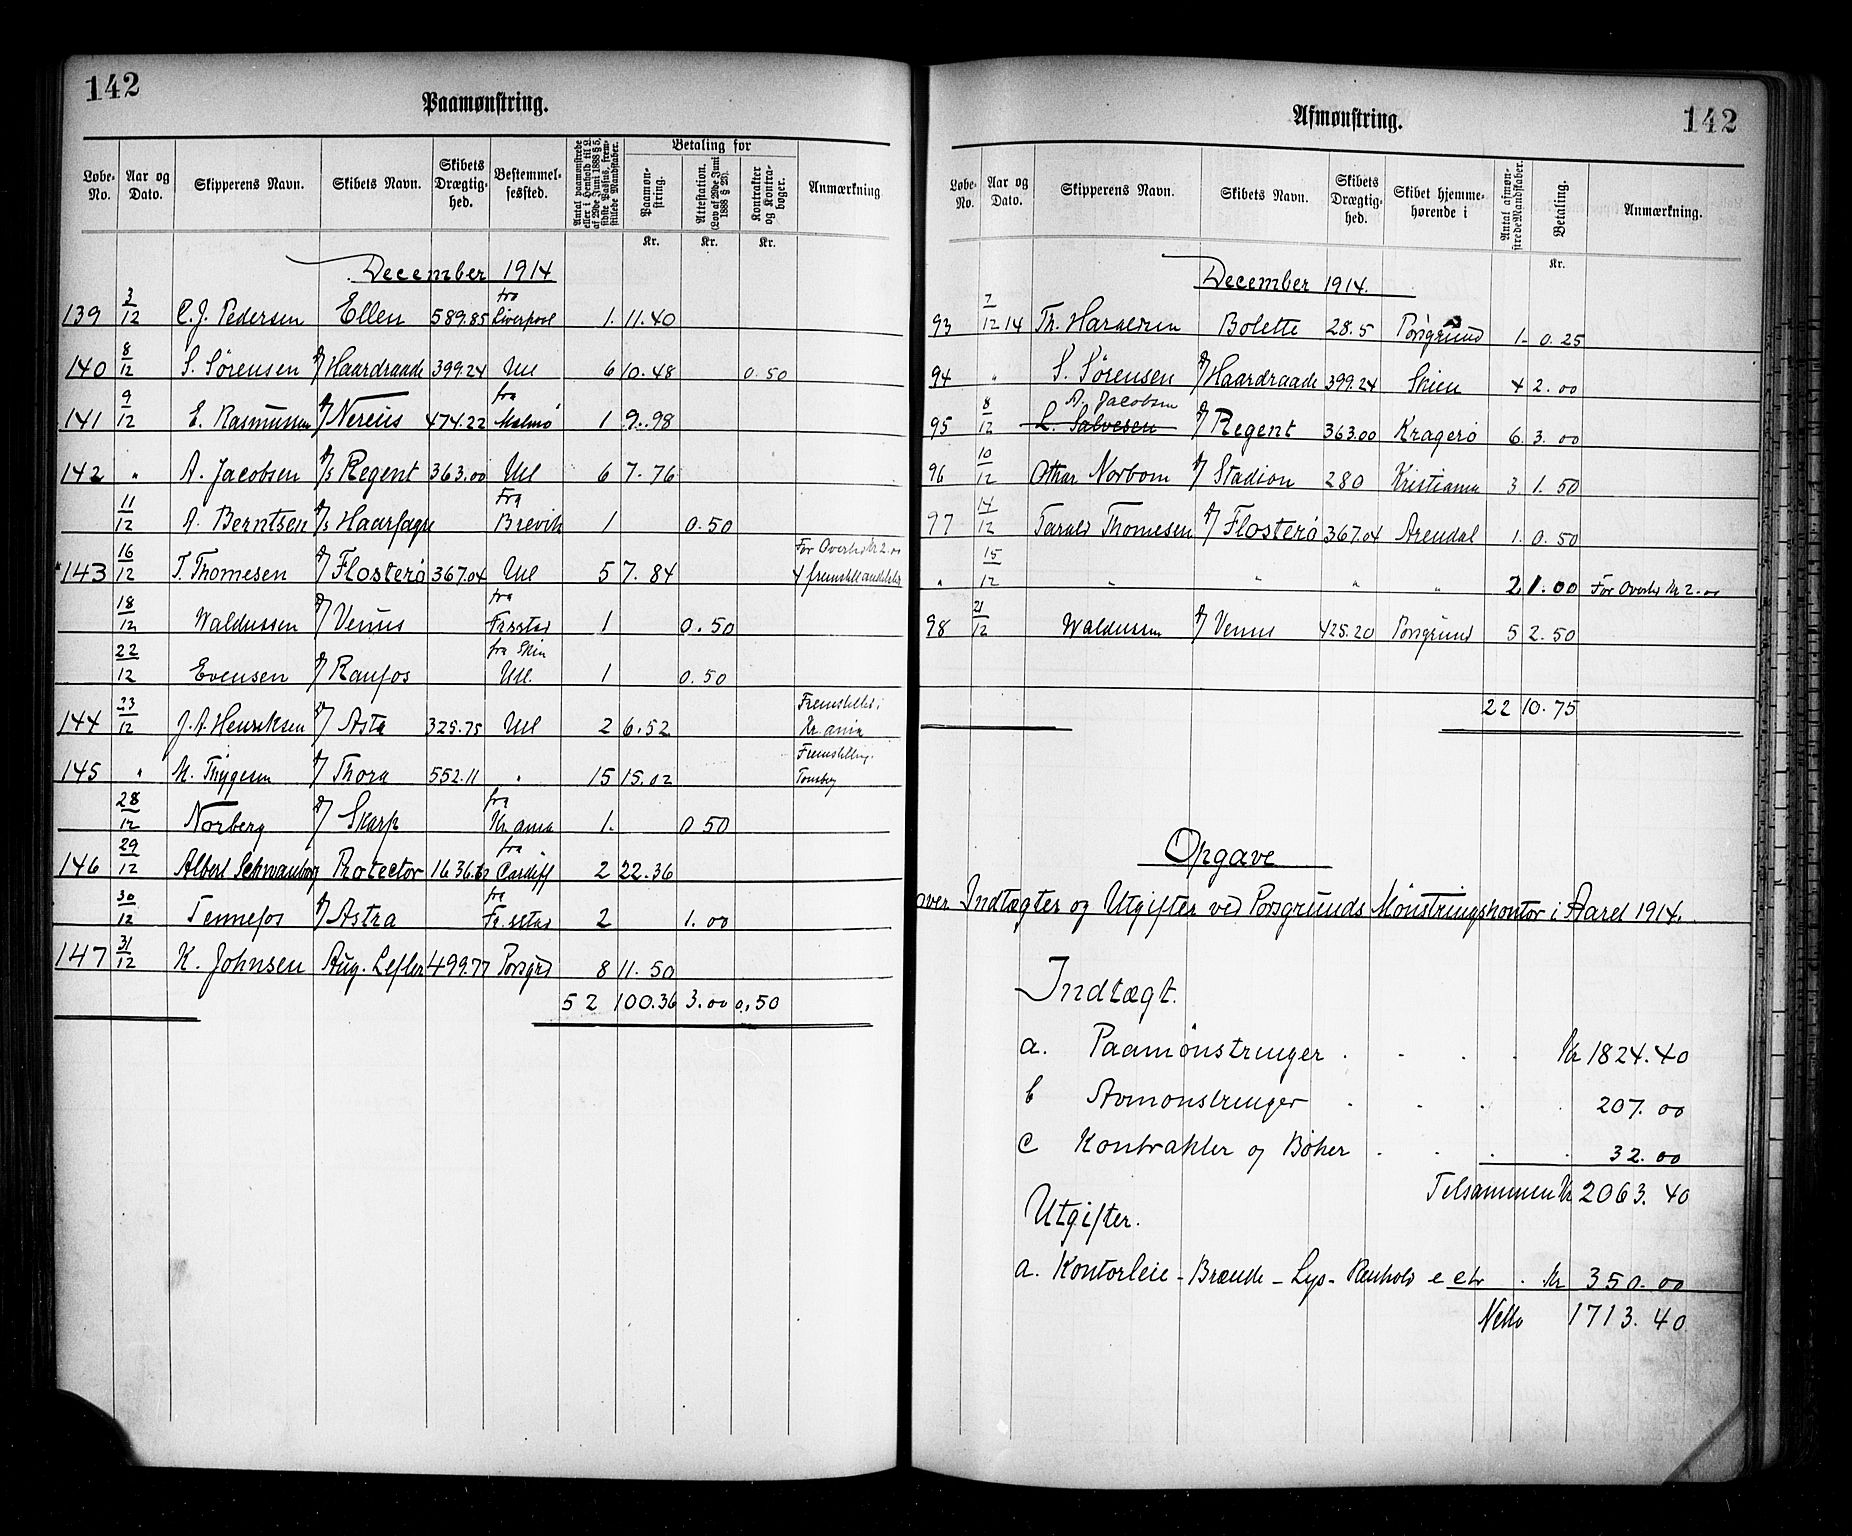 142
Paamønstring.
Løbe-No. | Aar og Dato. | Skipperens Navn. | Skibets Navn. | Skibets Drægtig-hed. | Bestemmel-sessted. | Antal paamønstrede eller i Henhold til L. af 29de Juni 1888 § 5, sidste Passus, frem-stillede Mandskaber. | Betaling for | Paamøn-string. | Attestation. (Lov af 29de Juni 1888 § 25). | Kontrakter og Kontra-bøger. | Anmærkning
Kr. | Kr. | Kr.
December 1914
139 | 3/12 | C. J. Pedersen | Ellen | 589.85 | fra Liverpool | 1. | 11.40
140 | 8/12 | S. Sørensen | D/ Haardraade | 399.24 | Utl | 6 | 10.48 | | 0.50
141 | 9/12 | E. Rasmussen | D/ Nereus | 474.22 | fra Malmö | 1 | 9.98
142 | " | A. Jacobsen | D/s Regent | 363.00 | Utl | 6 | 7.76
11/12 | A. Berntsen | D/s Haarfagre | | Fra Brevik | 1 | | 0.50
143 | 16/12 | T. Thomesen | D/ Flosterø | 367.04 | Utl | 5 | 7.84 | | | For Overtid Kr 2.00
18/12 | Waldussen | D/ Venus | | fra | 1 | | 0.50
22/12 | Evensen | D/ Raufos | | fra Skien Utl. | 1 | | 0.50
144 | 23/12 | J. A. Henriksen | D/ Asta | 325.75 | Utl | 2 | 6.52 | | | Fremstillet i Kr. ania
145 | " | M. Thygesen | D/ Thora | 552.11 | " | 15 | 15.02 | | | Fremstilling. Tønsberg
28/12 | Norberg | D/ Skarp | | fra Kr. ania | 1. | | 0 50
146 | 29/12 | Albert Schwanborg | Protector | 1636.62 | fra Cardiff | 2 | 22.36
30/12 | Tennefos | D/ Astra | | fra Fr. stad | 2 | | 1.00
147 | 31/12 | K. Johnsen | Aug. Lefler | 499.77 | Porsgrd | 8 | 11.50
52 | 100.36 | 3.00 | 0,50
142
Afmønstring.
Løbe-No. | Aar og Dato. | Skipperens Navn. | Skibets Navn. | Skibets Drægtig-hed. | Skibet hjemme-hørende i | Antal afmøn-strede Mandskaber. | Betaling. | Anmærkning.
Kr.
December 1914.
93 | 7/12 14 | Th. Haraldsen | Bolette | 28.5 | Porsgrund | 1- | 0.25
94 | " | S. Sørensen | D/ Haardraade | 399.24 | Skien | 4 | 2.00
A. Jacobsen
95 | 8/12 | L. Salvesen | D/ Regent | 363.00 | Kragerø | 6. | 3.00
96 | 10/12 | Othar Norbom | D/ Stadion | 280 | Kristiania | 3 | 1.50
97 | 14/12 | Tarald Thomesen | D/ Flosterø | 367.04 | Arendal | 1. | 0.50
" | 15/12 | " | " | " | " | 2 | 1.00 | For Overtid Kr 2.00
98 | 21/12 | Waldussen | D/ Venus | 425.20 | Porsgrund | 5 | 2.50
22 | 10.75
Opgave
over Indtægter og Utgifter ved Porsgrunds Mønstringskontor i Aaret 1914.
Indtægt.
a. Paamønstringer . . . . Kr 1824.40
b Avmønstringer . . . . 207.00
c Kontrakter og Bøker . . . . 32.00
Tilsammen Kr 2063.40
Utgifter.
a. Kontorleie - Brænde - Lys - Renhold e ctr . Kr 350.00
Netto 1713.40